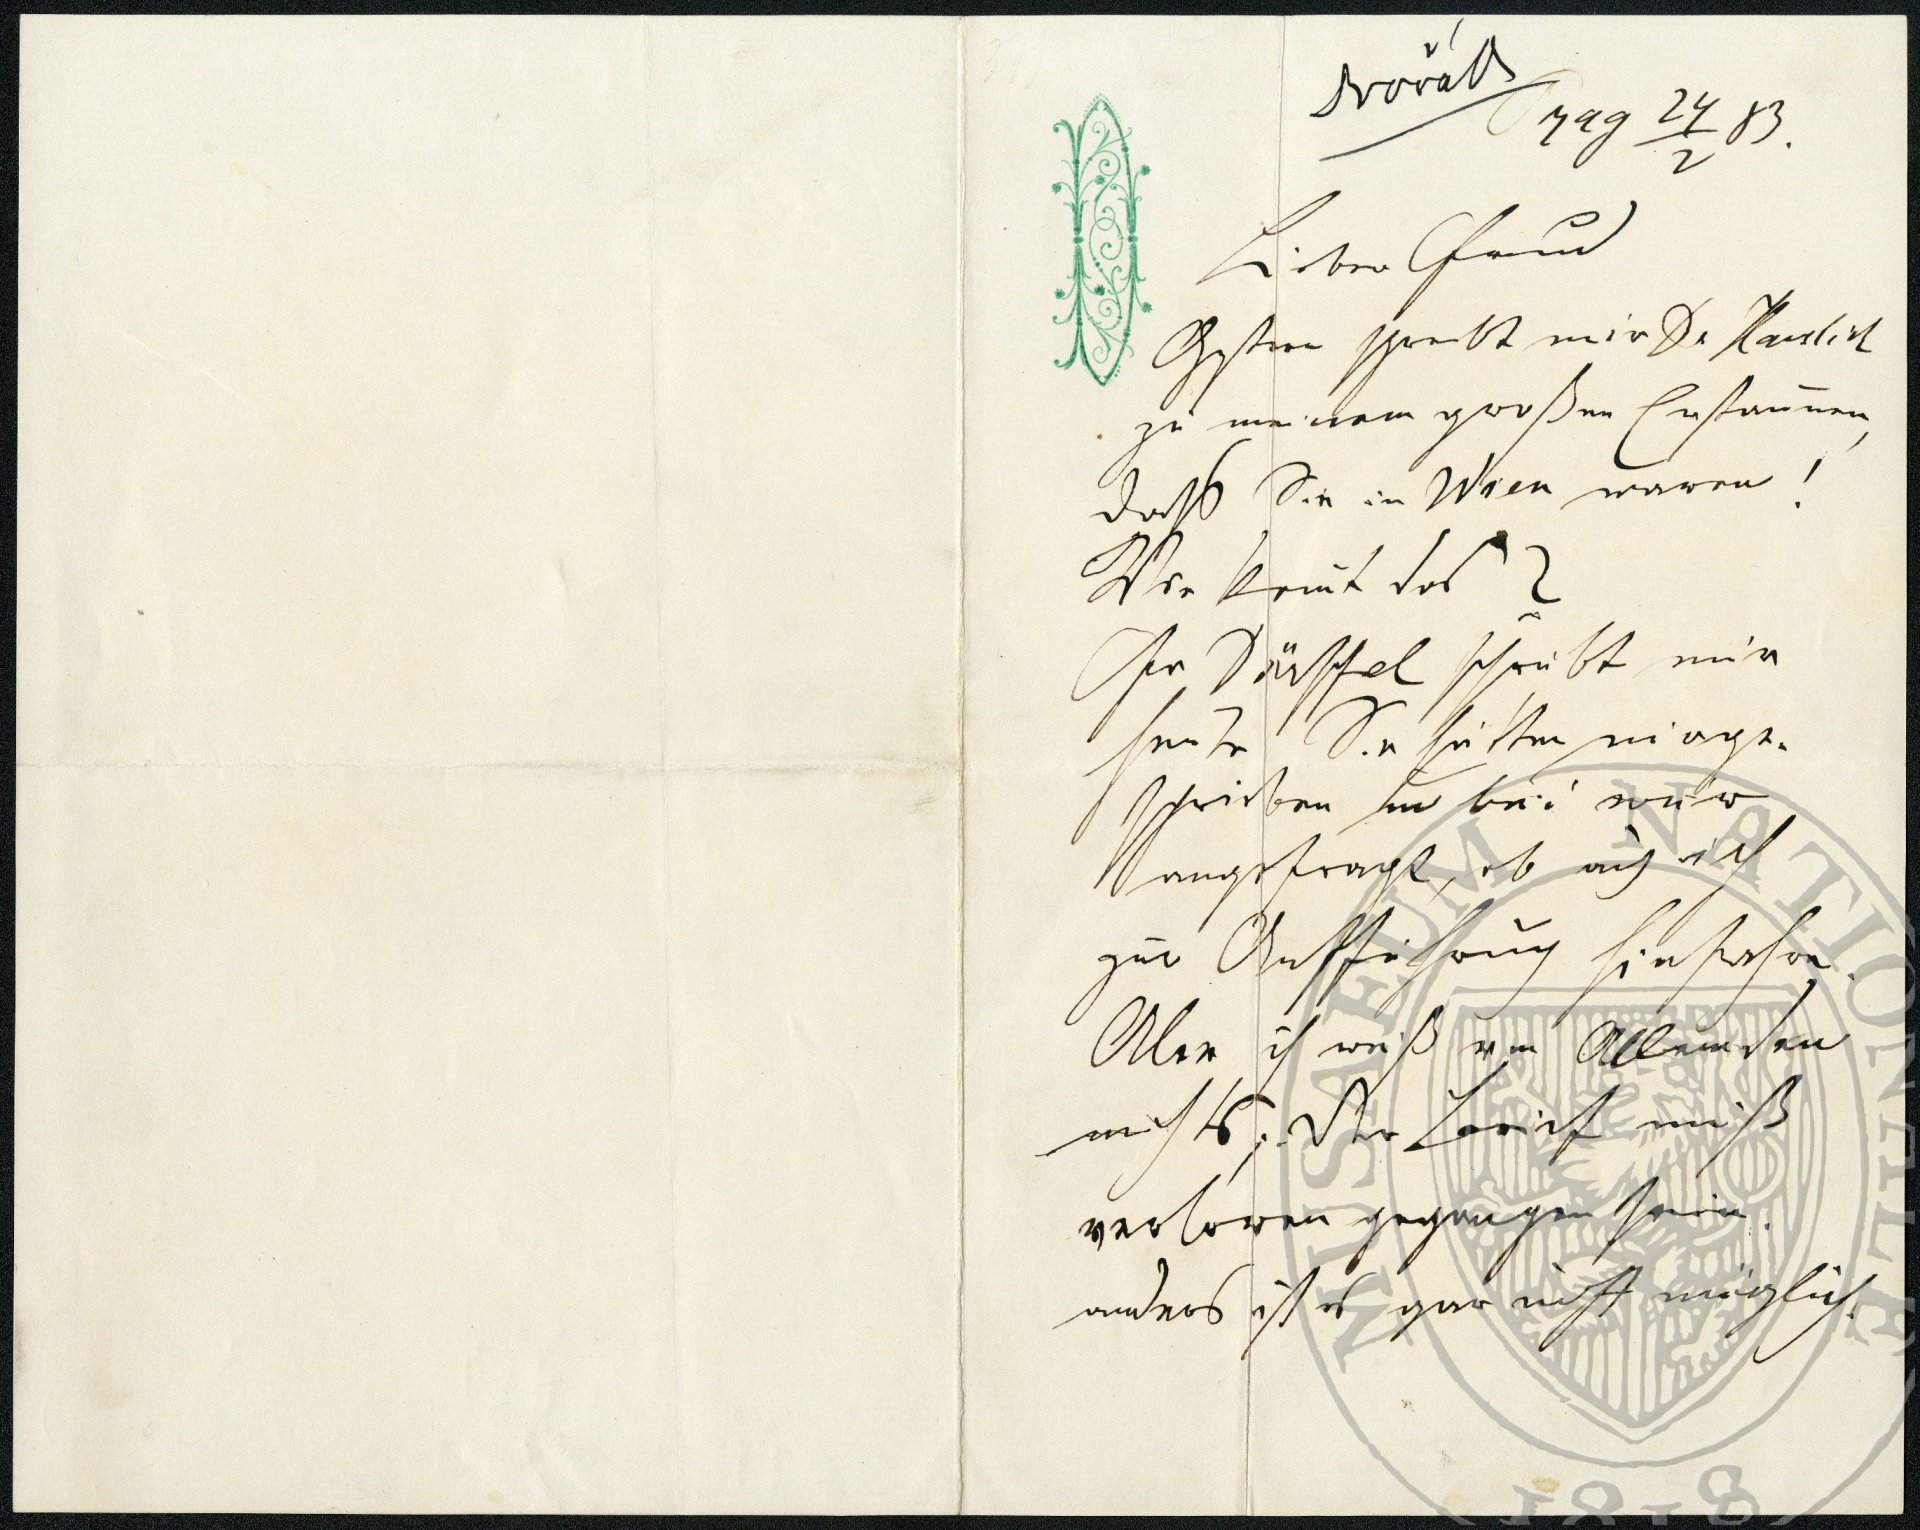 Dvořák
Prag 24/2 83.
Lieber Freund
Gestern schreibt mir Dr Hanslick
zu meinem großen Erstaunen,
daß Sie in Wien waren!
Wie kommt das?
Hr Dörffel schreibt mir
heute Sie hätten mir ge-
schrieben und bei mir
angefragt, ob auch ich
zur Aufführung hinfahre.
Aber ich weiß von Allem dem
nichts; Der Brief muß
verloren gegangen sein.
anders ist es gar nicht möglich.
MUSAEUM NATIONALE
1818